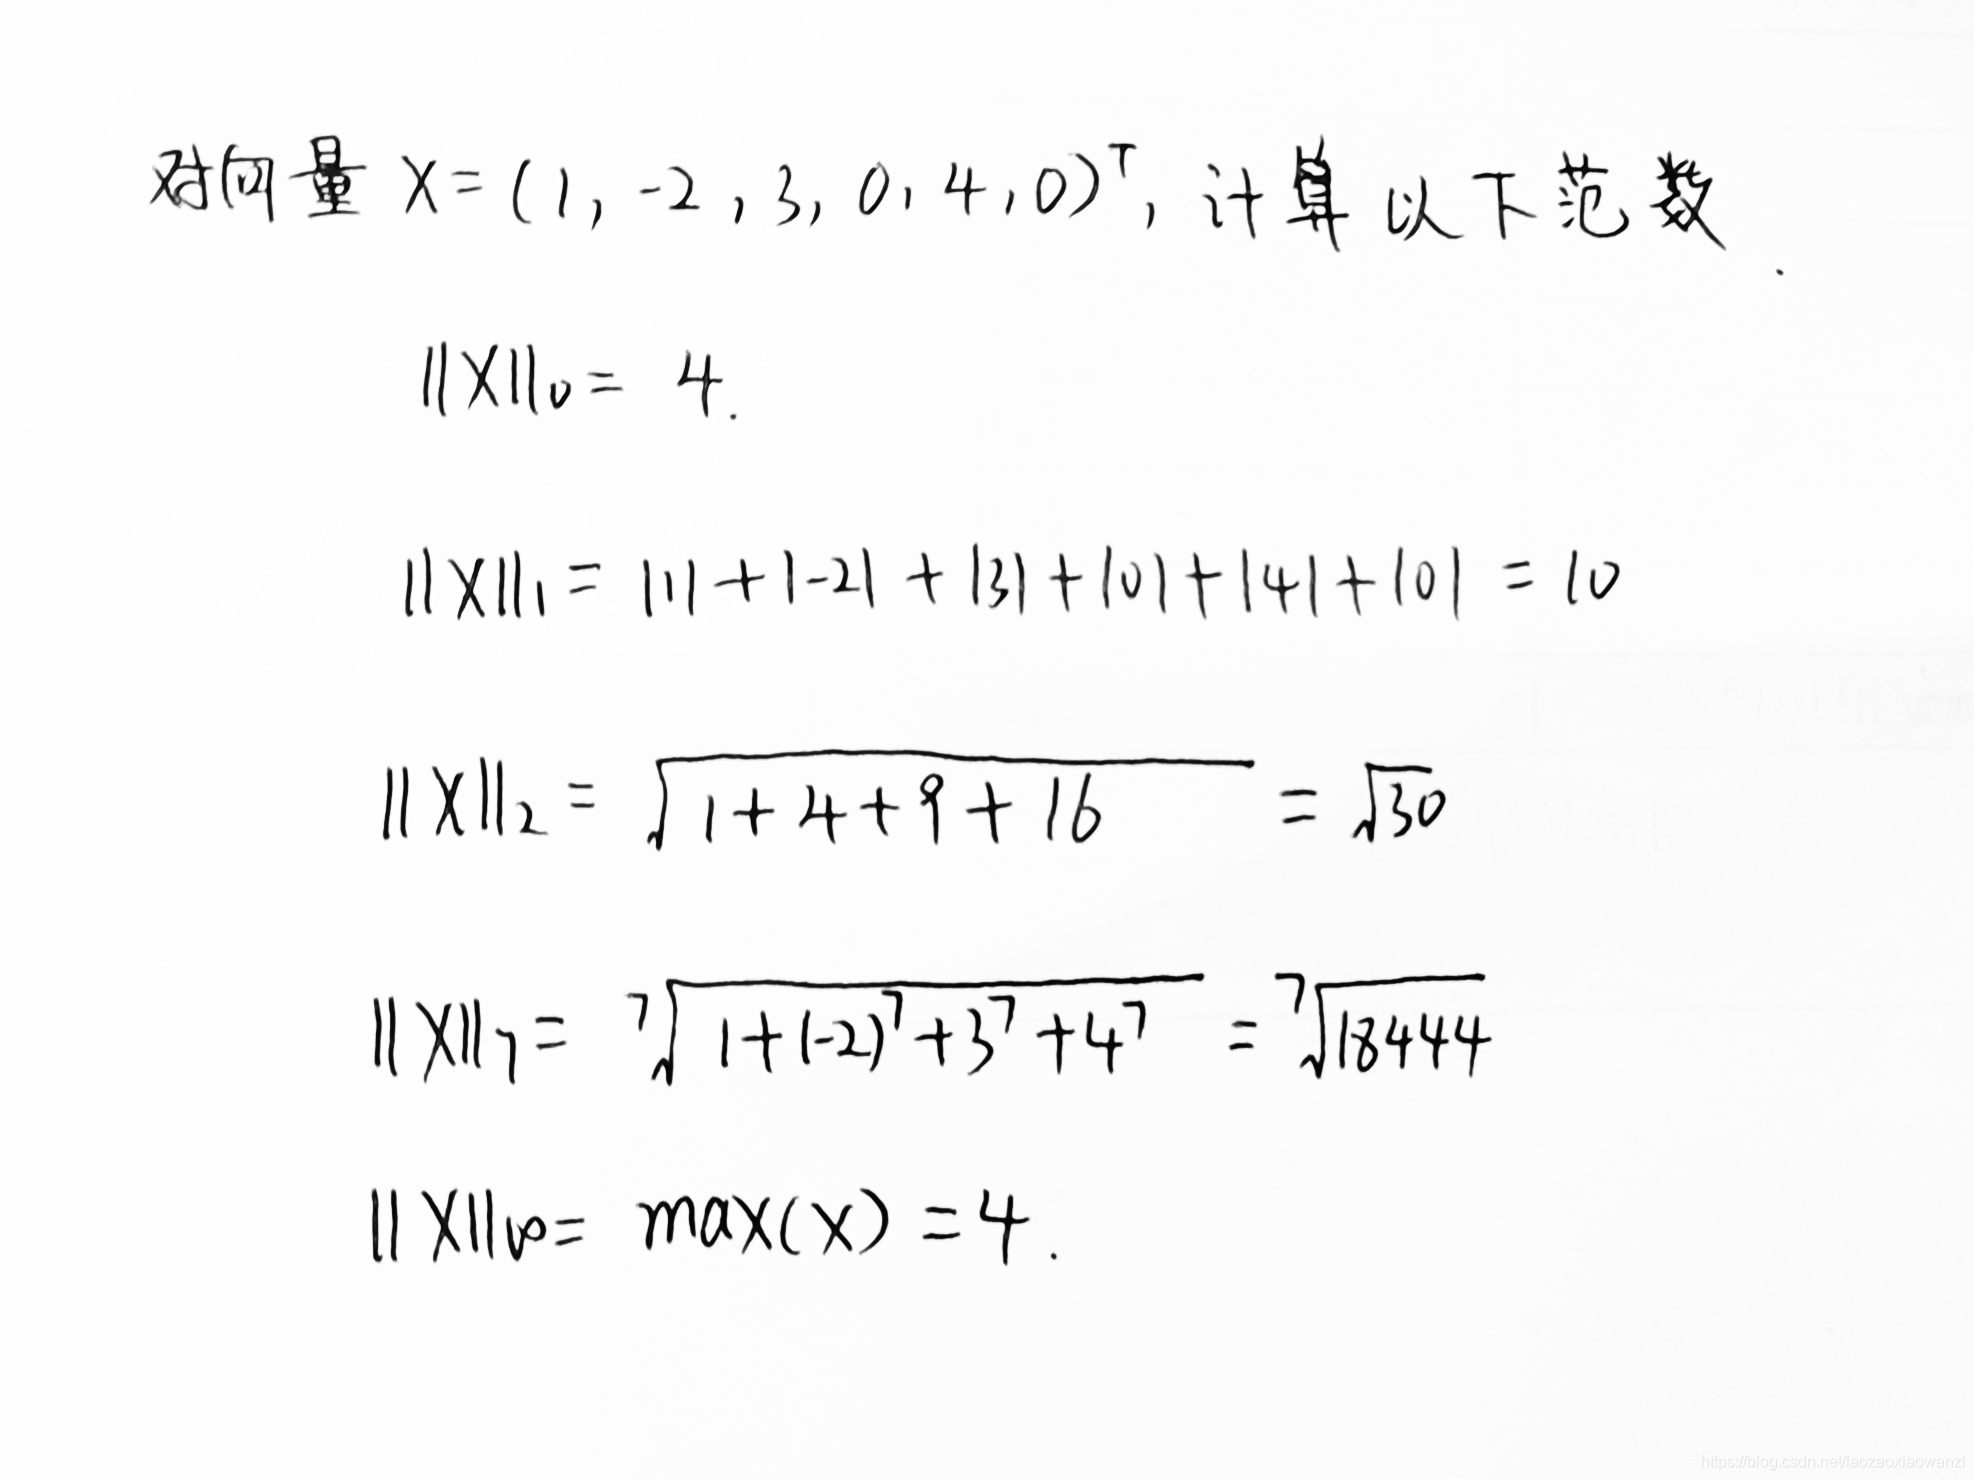 对向量 X = (1, -2, 3, 0, 4, 0)ᵀ, 计算以下范数.
||X||₀ = 4.
||X||₁ = |1| + |-2| + |3| + |0| + |4| + |0| = 10
||X||₂ = √(1+4+9+16) = √30
||X||₇ = ⁷√(1+(-2)⁷+3⁷+4⁷) = ⁷√18444
||X||∞ = max(x) = 4.
https://blog.csdn.net/laozaoxiaowanzi